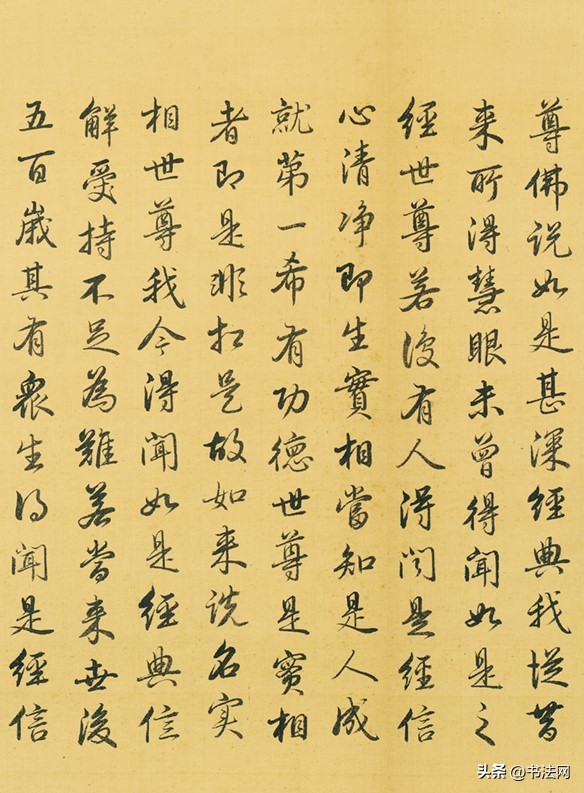 尊佛说如是甚深經典我從昔
来所得慧眼未曾得聞如是之
經世尊若復有人得闻是經信
心清净即生實相當知是人成
就第一希有功德世尊是實相
者即是非相是故如来说名实
相世尊我今得聞如是經典信
解受持不足為難若當来世後
五百歲其有衆生得聞是經信
头条 @书法网